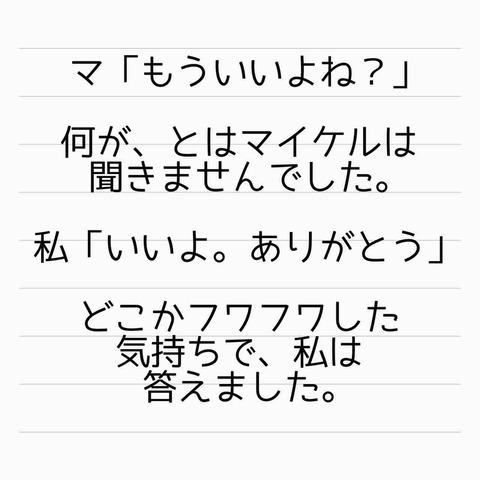 マ「もういいよね？」
何が、とはマイケルは
聞きませんでした。
私「いいよ。ありがとう」
どこかフワフワした
気持ちで、私は
答えました。